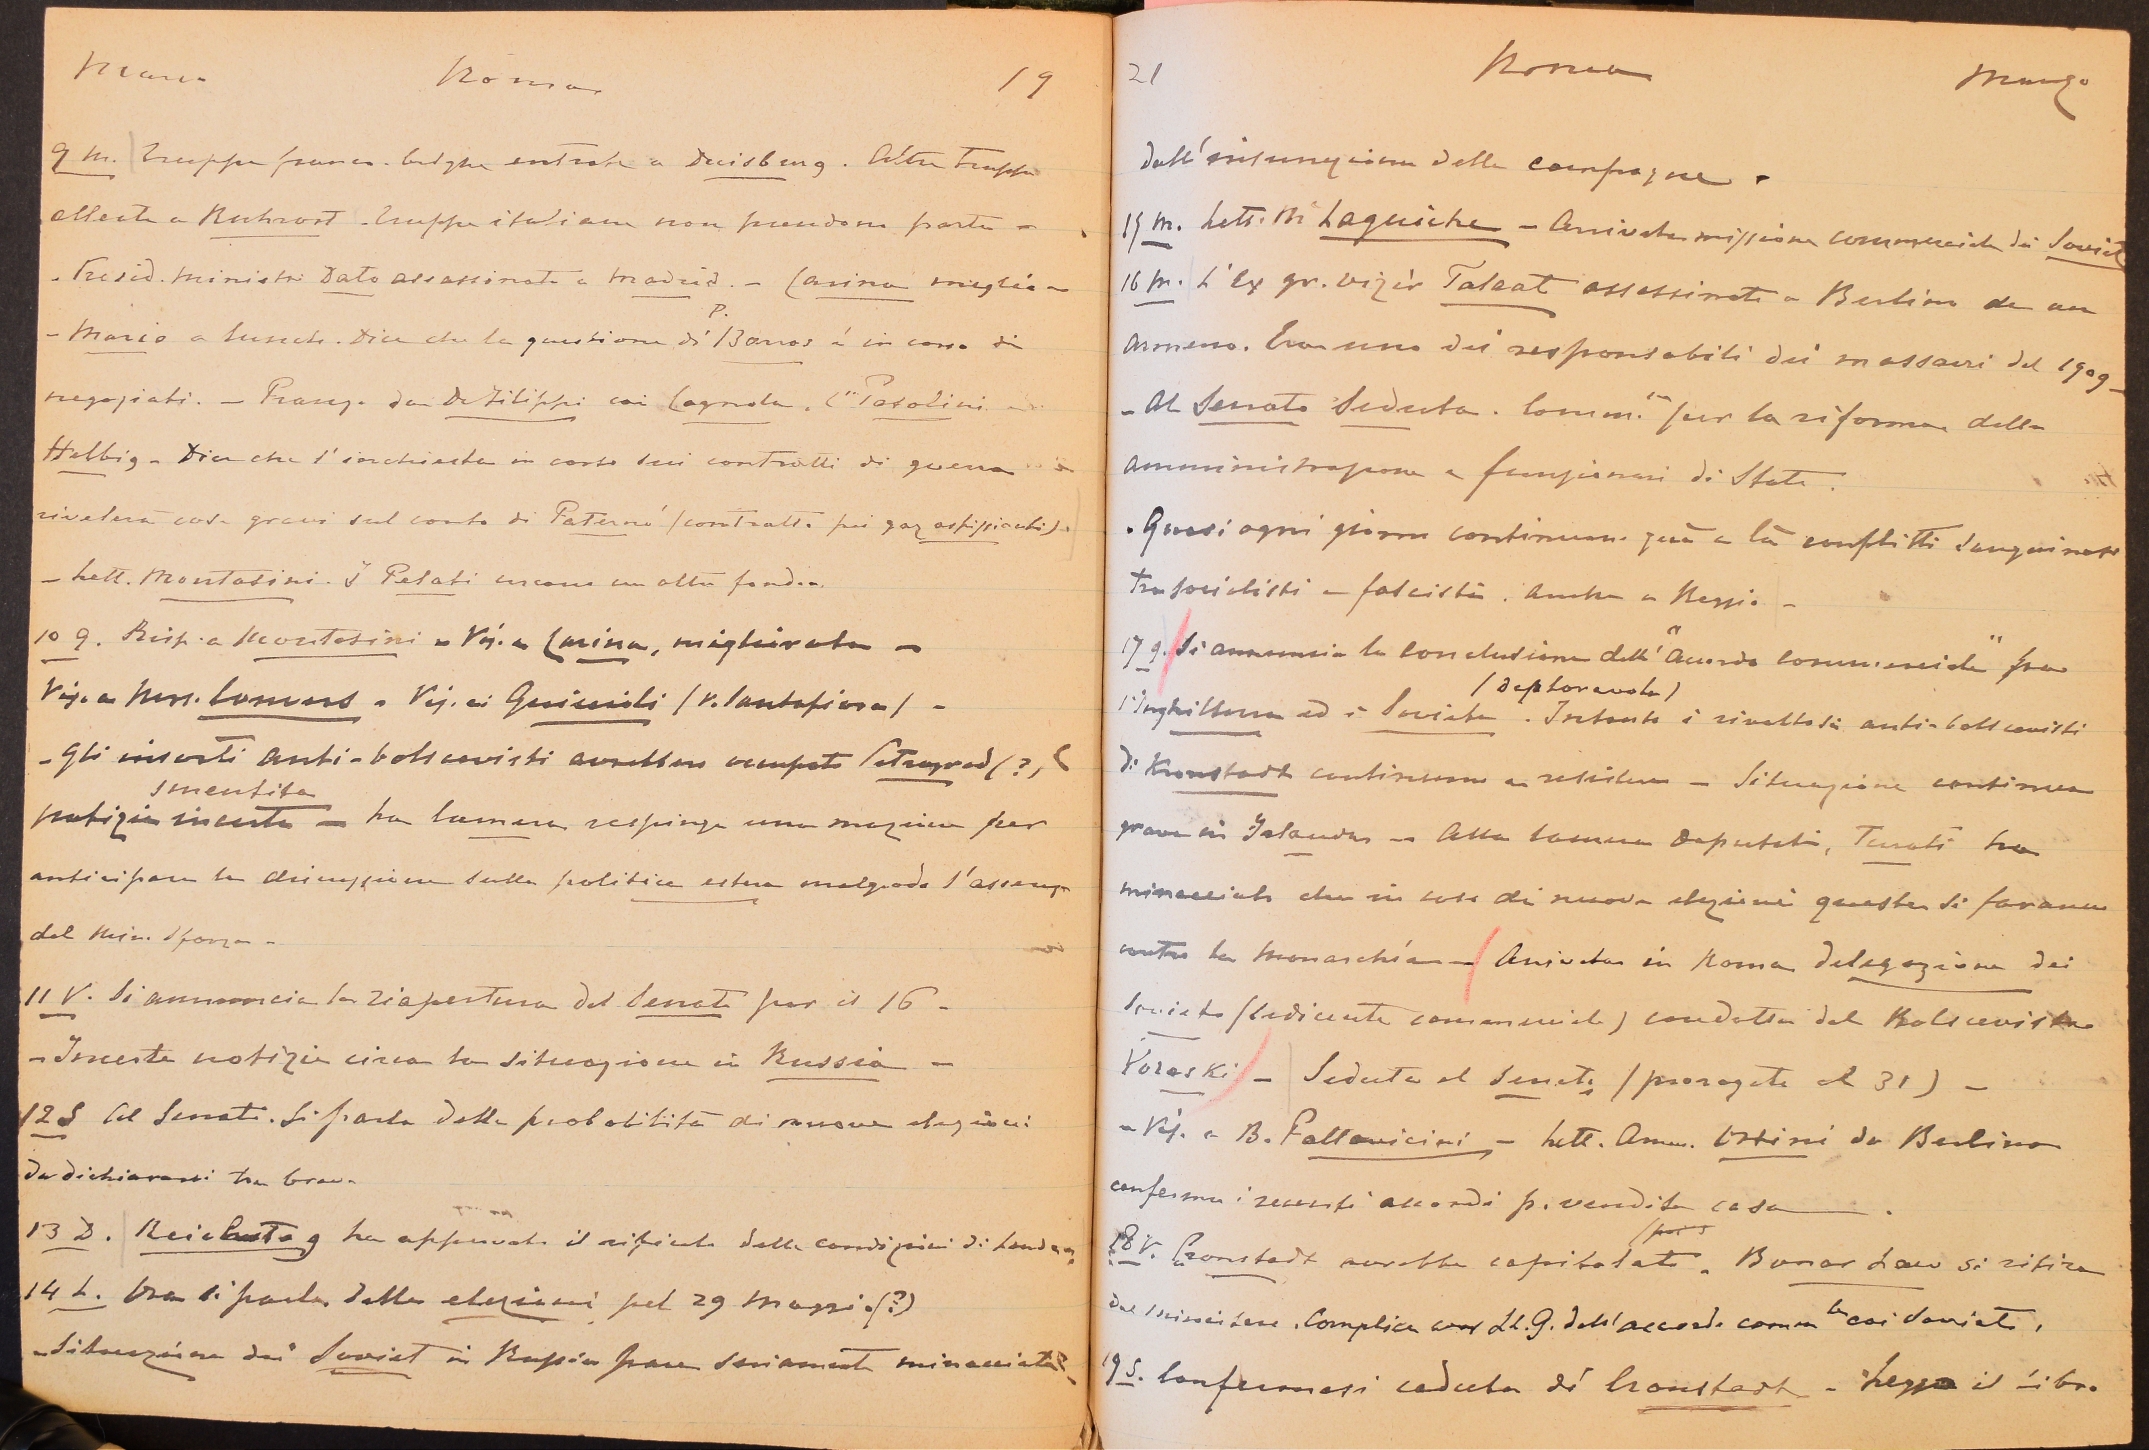 Marzo Roma 19
9 m. Truppe franco-belghe entrate a Duisburg. Altre truppe
allerte a Ruhrort. Truppe italiane non prendono parte -
- Presid. Ministri Dato assassinato a Madrid. - Carina meglio -
- Mario a lunch. Dice che la questione di P. Barros è in corso di
negoziati. - Pranzo da De Filippi coi Cagnola, Pasolini
Helbig - Dice che l'inchiesta in corso sui contratti di guerra
rivelerà cose gravi sul conto di Paternò (contratti pei gaz asfissianti).
- Lett. Montasini. I Pelati un altro
10 g. Risp. a Montasini - Vis. a Carina, migliorata -
Vis. a Mrs. - Vis. ai (v. Santafiora) -
- Gli insorti anti-bolscevisti avrebbero occupato Petrograd (?)
smentita
notizia incerta - La Camera respinge una mozione per
anticipare la discussione sulla politica estera malgrado l'assenza
del Min. Sforza -
11 V. Si annuncia la riapertura del Senato per il 16 -
- Incerte notizie circa la situazione in Russia -
12 S Al Senato. Si parla della probabilità di nuove elezioni
da dichiararsi tra breve
13 D. Reichstag ha approvato il rifiuto delle condizioni di Londra
14 L. Ora si parla delle elezioni pel 29 Maggio (?)
- Situazione dei Soviet in Russia pare seriamente minacciata
21 Roma Marzo
dall'insurrezione delle campagne.
15 m. Lett. Mi Laguiche - Arrivata missione commerciale dei Soviet
16 m. L'Ex gr. vizir Talaat assassinato a Berlino da un
armeno. Era uno dei responsabili dei massacri del 1909 -
- Al Senato Seduta. Comm.ne per la riforma della
amministrazione e funzionari di Stato.
- Quasi ogni giorno continuano quà e là conflitti sanguinosi
tra socialisti e fascisti. Anche a Reggio -
17 g. Si annuncia la conclusione dell' "Accordo commerciale" fra
(deplorevole)
l'Inghilterra ed i Soviets. Intanto i rivoltosi anti-bolscevisti
di Kronstadt continuano a resistere - Situazione continua
grave in Irlanda - Alla Camera Deputati, Turati ha
minacciato che in caso di nuove elezioni queste si faranno
contro la Monarchia - Arrivata in Roma delegazione dei
Soviets (sedicente commerciale) condotta dal Bolscevista
Voroski - Seduta al Senato (prorogato al 31) -
- Vis. a B. Pallavicini - Lett. Amm. Orsini da Berlino
conferma i recenti accordi p. vendita casa.
18 V. Cronstadt avrebbe capitolato. Bonar Law si ritira
dal ministero. Complice con Ll. G. dell'accordo comm.le coi Soviets.
19 S. Confermasi caduta di Cronstadt - Leggo il libro